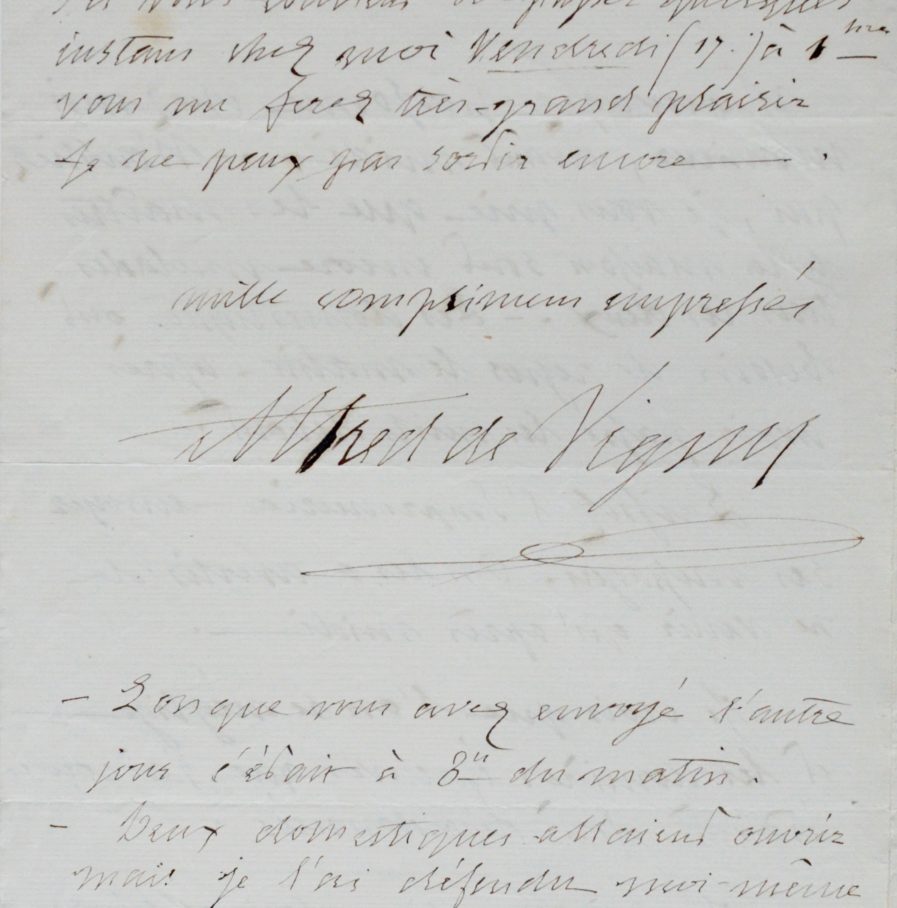 vous passer quelques
instans chez moi Vendredi (17.) à 1 hre
vous me ferez très-grand plaisir
Je ne peux pas sortir encore.
mille complimens empressés
Alfred de Vigny
- Lorsque vous avez envoyé l'autre
jour c'était à 8h du matin.
- Deux domestiques allaient ouvrir
mais je l'ai défendu moi-même